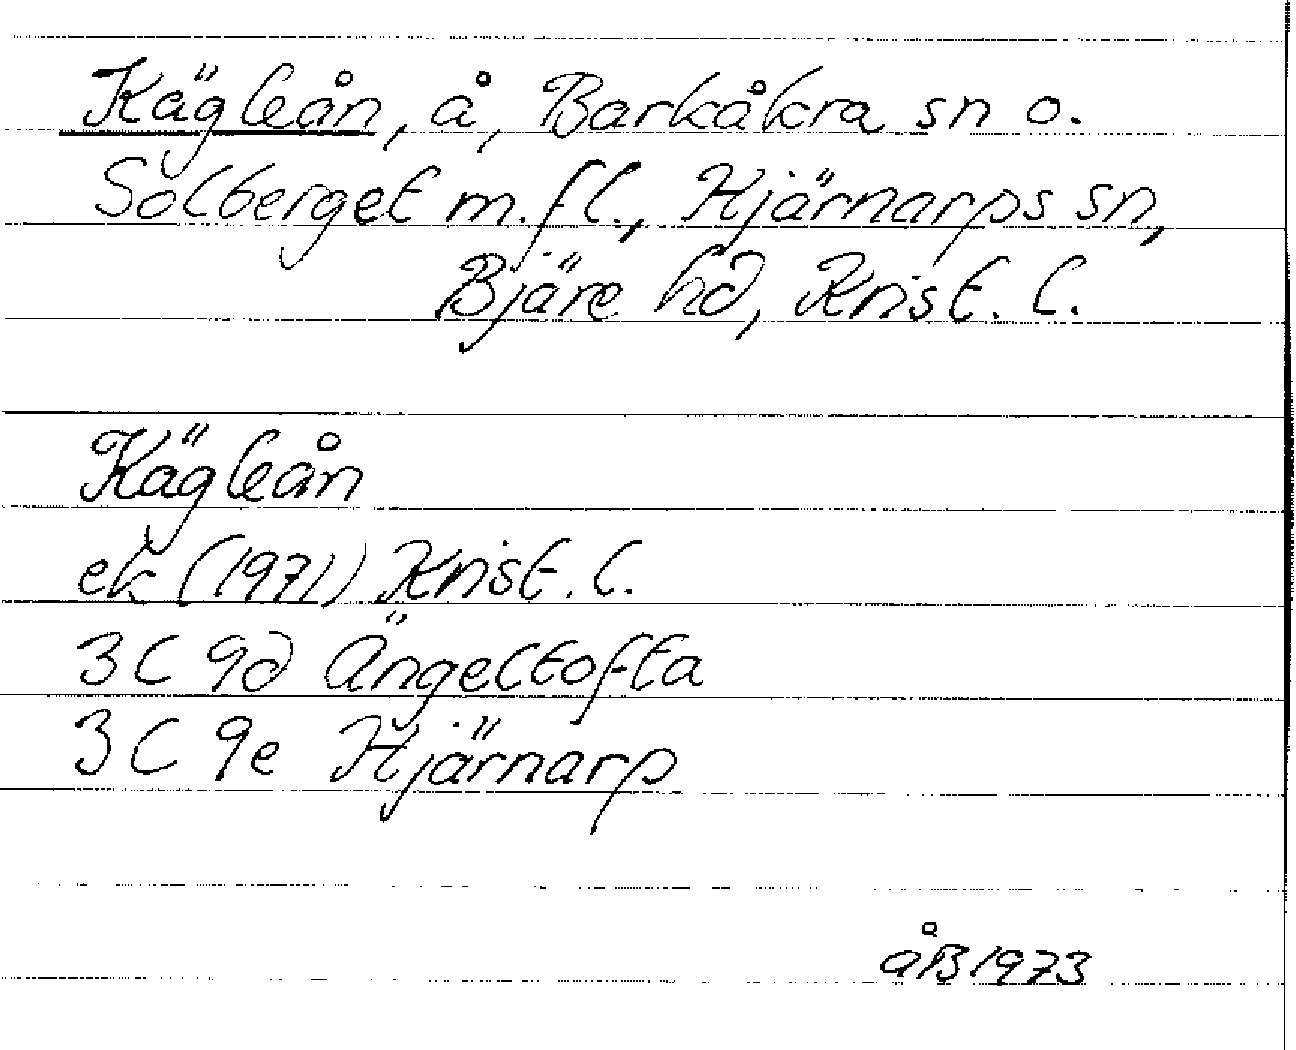 Kägleån, å, Barkåkra sn o.
Solberget m.fl., Hjärnarps sn,
Bjäre hd, Krist. l.
Kägleån
ek (1971) Krist. l.
3C 9d Ängeltofta
3C 9e Hjärnarp
åB 1973